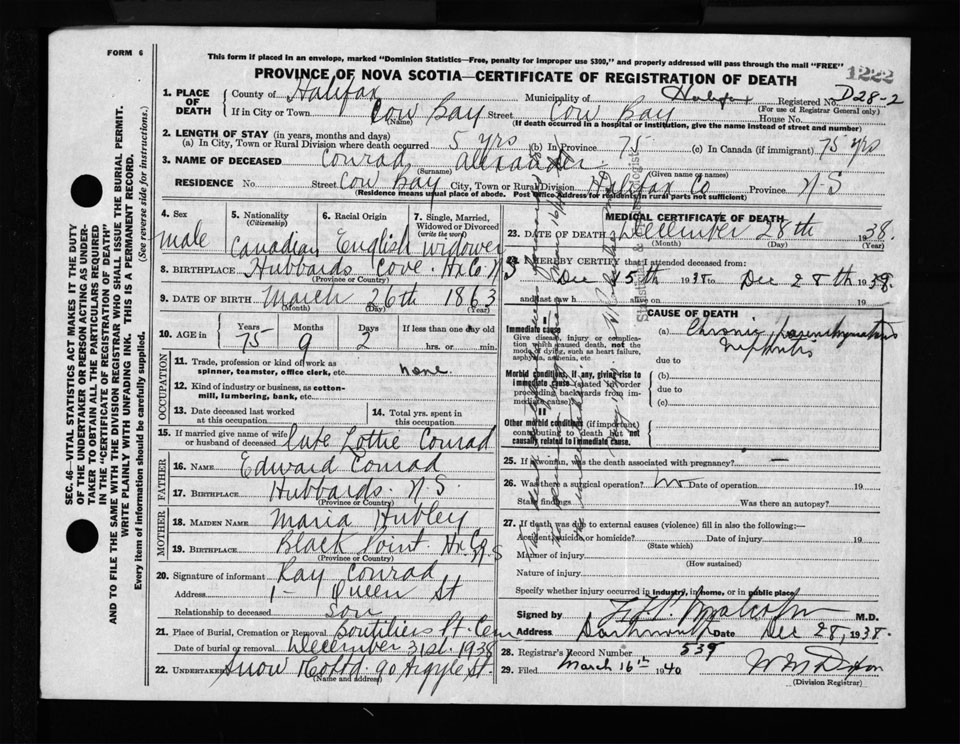 FORM 6
This form if placed in an envelope, marked "Dominion Statistics—Free, penalty for improper use $300," and properly addressed will pass through the mail "FREE"
PROVINCE OF NOVA SCOTIA—CERTIFICATE OF REGISTRATION OF DEATH
1222
1. PLACE OF DEATH County of Halifax Municipality of Halifax Registered No. D28-2
(For use of Registrar General only)
If in City or Town Cow Bay Street Cow Bay House No.
(Name) (If death occurred in a hospital or institution, give the name instead of street and number)
2. LENGTH OF STAY (in years, months and days)
(a) In City, Town or Rural Division where death occurred 5 yrs (b) In Province 75 (c) In Canada (if immigrant) 75 yrs
3. NAME OF DECEASED Conrad, Alexander
(Surname) (Given name or names)
RESIDENCE No. Street Cow Bay City, Town or Rural Division Halifax Co Province N-S
(Residence means usual place of abode. Post Office Address for residents in rural parts not sufficient)
4. Sex Male
5. Nationality (Citizenship) Canadian
6. Racial Origin English
7. Single, Married, Widowed or Divorced (write the word) Widower
8. BIRTHPLACE Hubbards Cove. Hx Co N S
(Province or Country)
9. DATE OF BIRTH March 26th 1863
(Month) (Day) (Year)
10. AGE in Years 75 Months 9 Days 2 If less than one day old hrs. or min.
OCCUPATION
11. Trade, profession or kind of work as spinner, teamster, office clerk, etc. none.
12. Kind of industry or business, as cotton-mill, lumbering, bank, etc.
13. Date deceased last worked at this occupation
14. Total yrs. spent in this occupation
15. If married give name of wife or husband of deceased Lottie Conrad
FATHER
16. NAME Edward Conrad
17. BIRTHPLACE Hubbards. N.S.
(Province or Country)
MOTHER
18. MAIDEN NAME Maria Hubley
19. BIRTHPLACE Black Point. Hx Co N S
(Province or Country)
20. Signature of informant Ray Conrad
Address 1- Queen St
Relationship to deceased Son
21. Place of Burial, Cremation or Removal Boutiliers Pt. Cem
Date of burial or removal December 31st 1938
22. UNDERTAKER Snow & Co Ltd. 90 Argyle St
(Name and address)
MEDICAL CERTIFICATE OF DEATH
23. DATE OF DEATH December 28th 1938.
(Month) (Day) (Year)
24. I HEREBY CERTIFY that I attended deceased from:
Dec 5th 1938 to Dec 28th 1938.
and last saw h alive on 19
CAUSE OF DEATH
I
Immediate cause
Give disease, injury or complication which caused death, not the mode of dying, such as heart failure, asphyxia, asthenia, etc
(a) Chronic parenchymatous Nephritis
due to
Morbid conditions, if any, giving rise to immediate cause (stated in order proceeding backwards from immediate cause).
(b)
due to
(c)
II
Other morbid conditions (if important) contributing to death but not causally related to immediate cause.
25. If a woman, was the death associated with pregnancy? —
26. Was there a surgical operation? No Date of operation 19
State findings Was there an autopsy?
27. If death was due to external causes (violence) fill in also the following:—
Accident, suicide or homicide? Date of injury 19
(State which)
Manner of injury
(How sustained)
Nature of injury
Specify whether injury occurred in industry, in home, or in public place
Signed by Malcolm M.D.
Address Dartmouth Date Dec 28, 1938.
28. Registrar's Record Number 539
29. Filed March 16th 1940
(Division Registrar)
SEC. 46—VITAL STATISTICS ACT MAKES IT THE DUTY
OF THE UNDERTAKER OR PERSON ACTING AS UNDERTAKER
TO OBTAIN ALL THE PARTICULARS REQUIRED
IN THE "CERTIFICATE OF REGISTRATION OF DEATH"
AND TO FILE THE SAME WITH THE DIVISION REGISTRAR WHO SHALL ISSUE THE BURIAL PERMIT.
WRITE PLAINLY WITH UNFADING INK. THIS IS A PERMANENT RECORD.
Every item of information should be carefully supplied. (See reverse side for instructions.)